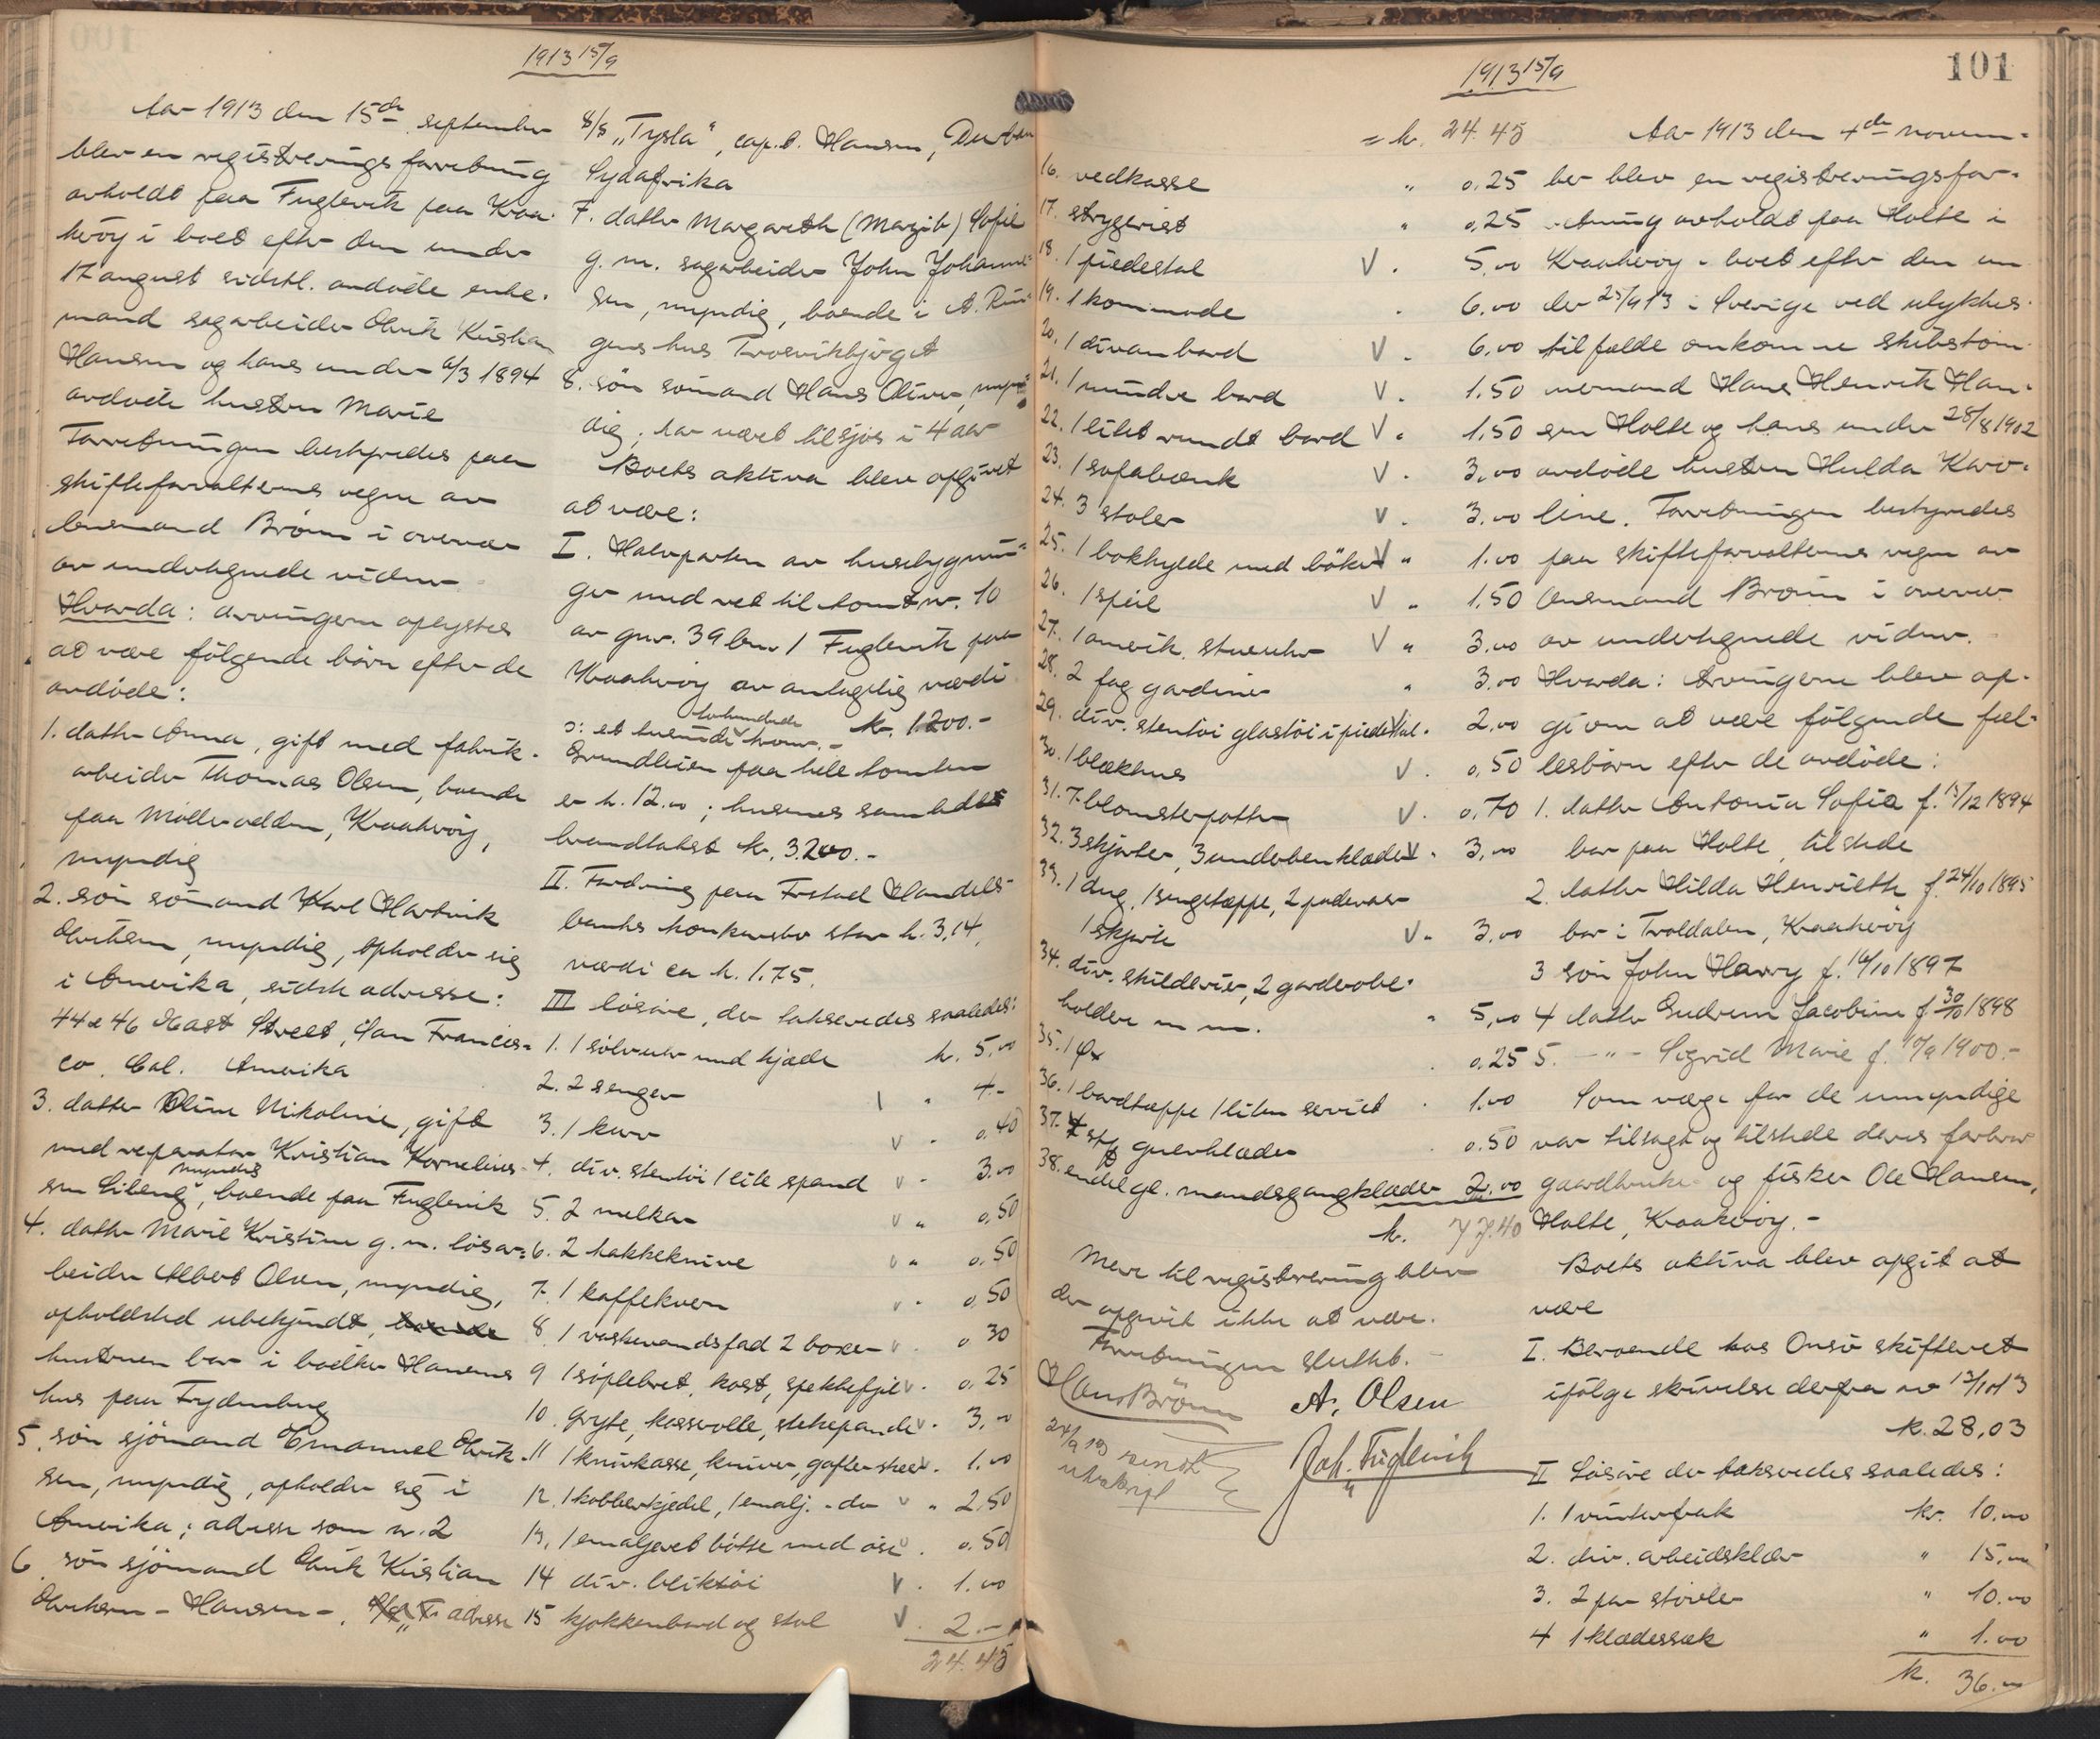 1913 15/9
Aar 1913 den 15de september
blev en registreringsforretning
avholdt paa Fuglevik paa Kraa-
keröy i boet efter den under
17 august sidstl. avdøde enke-
mand sagarbeider Olrik Kristian
Hansen og hans under 6/3 1894
avdøde hustru Marie
Forretningen bestyredes paa
skifteforvalterens vegne av
lensmand Brönn i overvær
av undertegnede vidner
Hvorda: arvingerne oplystes
at være følgende børn efter de
avdøde:
1. datter Anna, gift med fabrik-
arbeider Thomas Olsen, boende
paa Möllerodden, Kraakeröy,
myndig
2. søn sömand Karl Hartvik
Olriksen, myndig, opholder sig
i Amerika, sidste adresse:
44 & 46 East Street, San Francis-
co. Cal. Amerika
3. datter Oline Nikoline, gift
med reparatør Kristian Kornelius-
myndig
sen Lileng, boende paa Fuglevik
4. datter Marie Kristine g. m. lösar-
beider Albert Olsen, myndig,
opholdsted ubekjendt, boende
hustruen bor i bødker Hansens
hus paa Frydenberg
5. søn sjömand Emanuel Olrik-
sen, myndig, opholder sig i
Amerika; adresse som nr. 2
6. søn sjömand Olrik Kristian
Olriksen - Hansen -, adresse
S/S "Tysla", cap.t. Hansen, Durban
Sydafrika
7. datter Margareth (Margit) Sofie
g. m. sagarbeider John Johanne-
sen, myndig, boende i A. Rin-
gens hus Trosvikbjerget
8. søn sömand Hans Oliver, myn-
dig, har været tilsjøs i 4 aar
Boets aktiva blev opgivet
at være:
I. Halvparten av husebygnin-
ger med ret til tomt nr. 10
av gnr. 39 bnr 1 Fuglevik paa
Kraakeröy av antagelig værdi
kr. 1200.-
tohundrede
o: et tusinde kron.-
Grundleien paa hele tomten
er kr. 12.00; husenes samlede
brandtakst kr. 3.200.-
II. Fordring paa Fr.stad Handels-
banks konkursbo stor kr. 3,14,
værdi ca kr. 1.75.
III løsøre, der takseredes saaledes:
1. 1 sølvuhr med kjæde kr. 5,00
2. 2 senger " 4.-
3. 1 kurv v " 0.40
4. div. stentøi 1 lite spand v - 3.00
5. 2 melkar v " 0,50
6. 2 hakkeknive v " 0.50
7. 1 kaffekvern v " 0,50
8. 1 vaskevandsfad 2 boxer v . 0 30
9 1 söplebret, kost, spekkefjel v . 0.25
10. gryte, kasserolle, stekepande v . 3,00
11 1 knivkasse, kniver, gafler skeer . 1.00
12. 1 kobberkjedel, 1 emalj. do v " 2,50
13. 1 emaljeret bötte med øse v . 0.50
14 div. bliktøi v . 1.00
15 kjøkkenbord og stol v . 2.-
24.45
1913 15/9
101
= kr. 24.45
16. vedkasse " 0.25
17. strygerist " 0,25
18. 1 piedestal v . 5,00
19. 1 kommode . 6.00
20. 1 divanbord v . 6,00
21. 1 mindre bord v . 1.50
22. 1 litet rundt bord v . 1,50
23. 1 sofabænk v . 3,00
24. 3 stoler v . 3.00
25. 1 bokhylde med bøker v " 1.00
26. 1 speil v . 1,50
27. 1 amerik. stueuhr v " 3.00
28. 2 fag gardiner " 3.00
29. div. stentøi glastøi i piedestal . 2.00
30. 1 blækhus v . 0,50
31. 7 blomsterpotter v . 0,70
32. 3 skjorter, 3 underbenklæder v . 3,00
33. 1 dug, 1 sengetæppe, 2 putevaar
1 skjorte v . 3,00
34. div. skilderier, 2 garderobe-
holdere m m. " 5,00
35. 1 øx . 0.25
36. 1 bordtæppe 1 liten serviet . 1.00
37. stk gulvklæder . 0.50
38. endel gl. mandsgangklæder 2.00
kr. 77.40
Mere til registrering blev
der opgivet ikke at være.
Forretningen sluttet.-
Hans Brönn A. Olsen
Joh. Fuglevik
24/9 13 sendt
utskrift
Aar 1913 den 4de novem-
ber blev en registreringsfor-
retning avholdt paa Holte i
Kraakeröy i boet efter den un-
der 25/9 13 i Sverige ved ulykkes-
tilfælde omkomne skibstøm-
mermand Hans Henrik Han-
sen Holte og hans under 28/8 1902
avdøde hustru Hulda Karo-
line. Forretningen bestyredes
paa skifteforvalterens vegne av
lensmand Brönn i overvær
av undertegnede vidner.
Hvorda: Arvingerne blev op-
given at være følgende fæl-
lesbørn efter de avdøde:
1. datter Antonia Sofie f. 13/12 1894
bor paa Holte, tilstede
2. datter Hilda Henriette f. 24/10 1895
bor i Troldalen, Kraakeröy
3 søn John Harry f. 16/10 1897
4 datter Gudrun Jacobine f. 30/10 1898
5. -"- Sigrid Marie f. 10/9 1900.-
Som verge for de umyndige
var tilsagt og tilstede deres farbror
gaardbruker og fisker Ole Hansen,
Holte, Kraakeröy.-
Boets aktiva blev opgit at
være
I. Beroende hos Onsø skifteret
ifølge skrivelse derfra av 13/10 13
kr. 28,03
II Løsøre der takseredes saaledes:
1. 1 vinterfrak kr. 10.00
2. div. arbeidsklær " 15,00
3. 2 par støvler " 10.00
4 1 klædessæk " 1.00
kr. 36.00